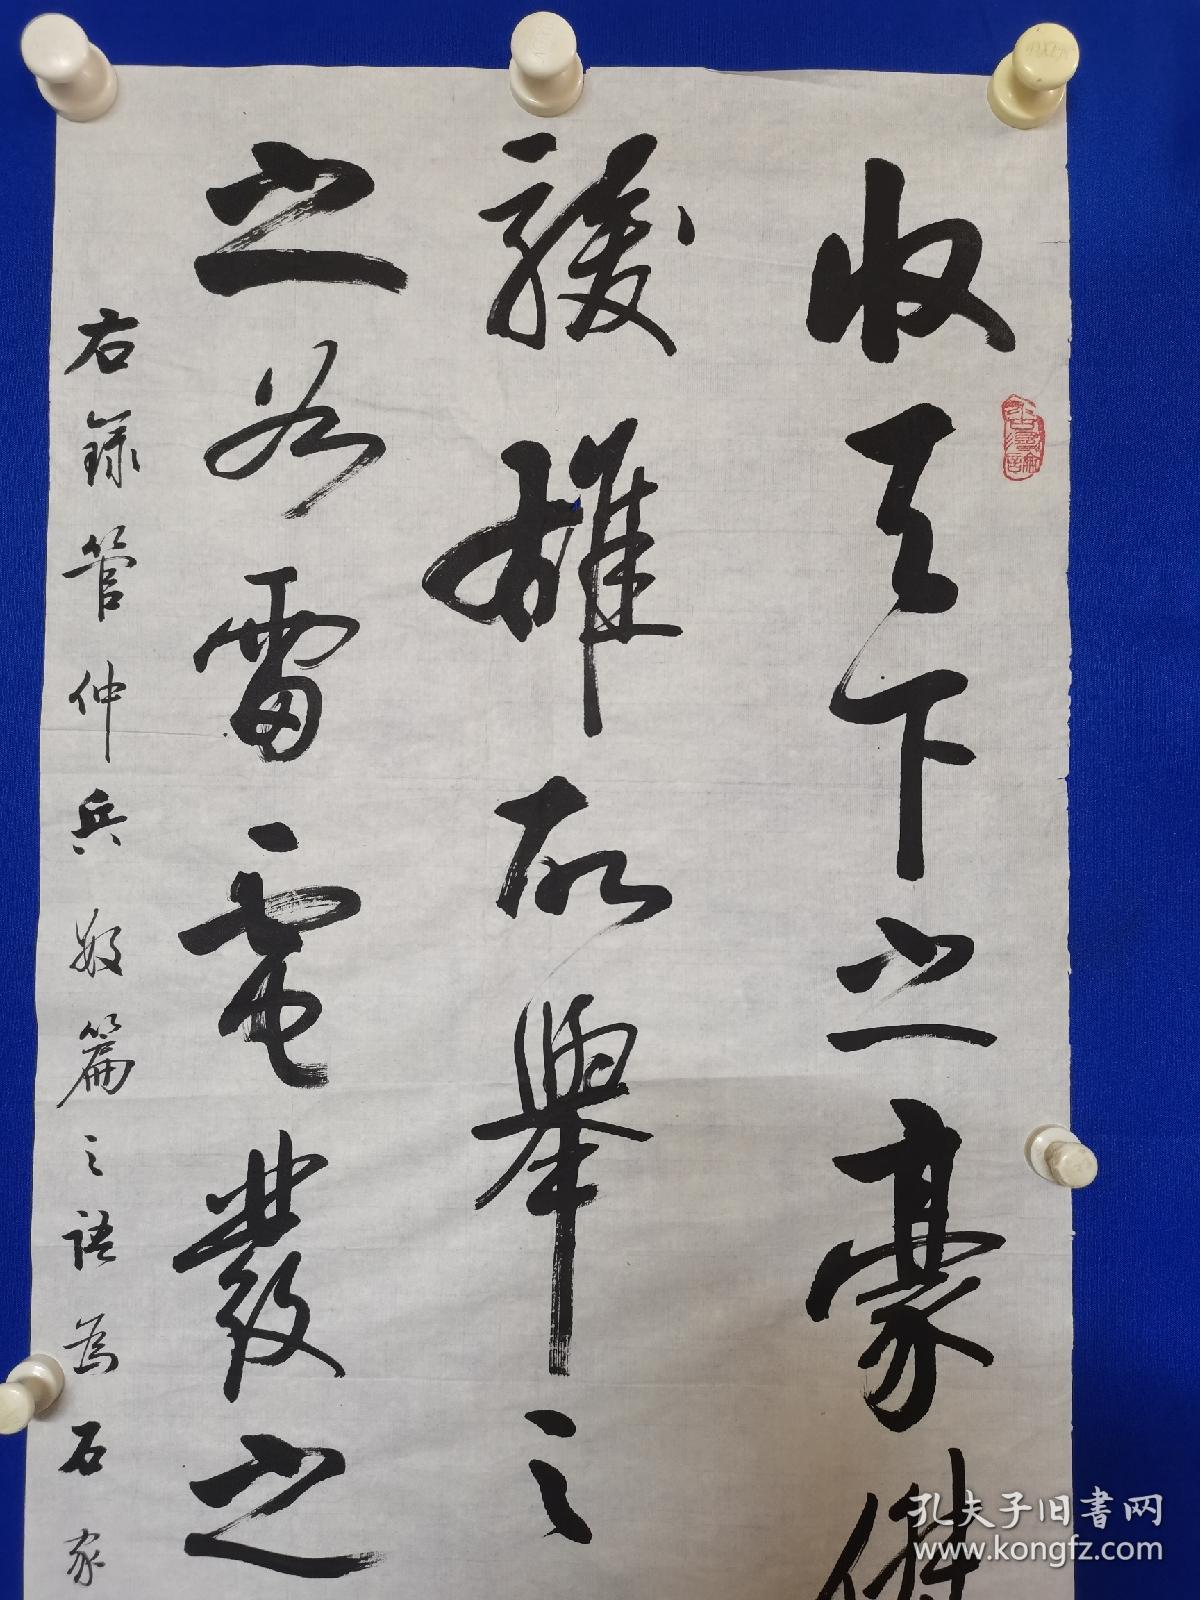 收天下之豪傑
駿雄故舉之
之如雷電發之
右錄管仲兵數篇之語為石家
孔夫子旧书网
www.kongfz.com